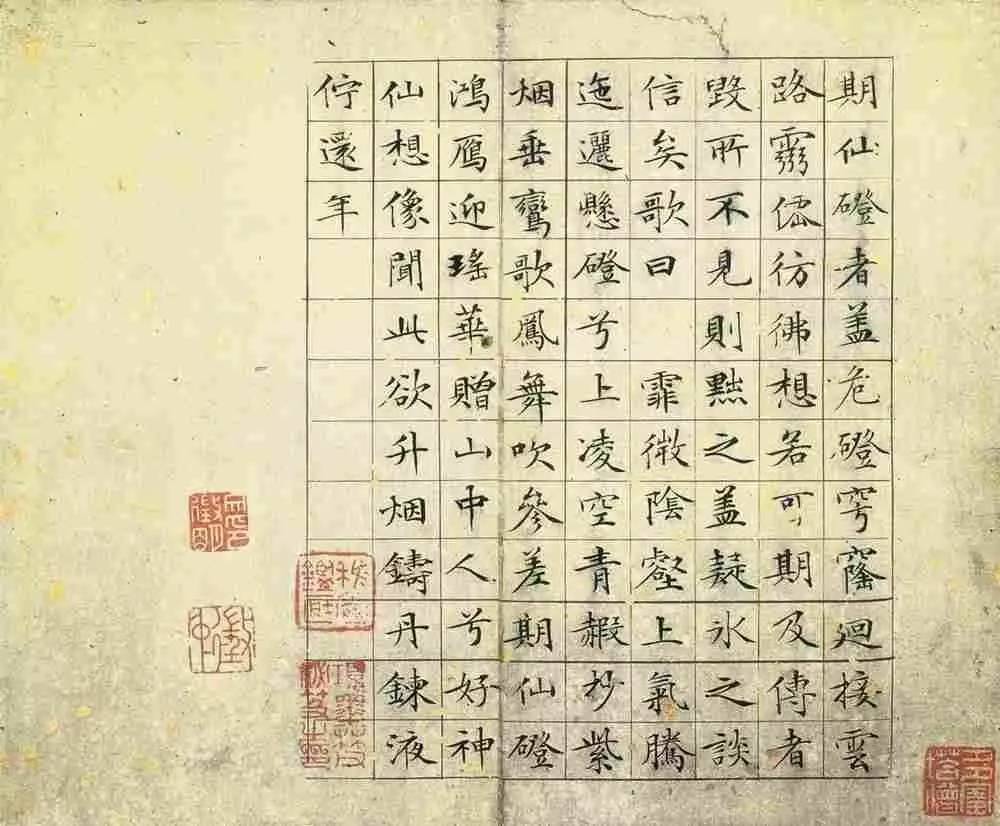 期仙磴者盖危磴穹窿迴接雲
路靈僊彷彿想若可期及傳者
毁所不見則黜之盖疑氷之談
信矣歌曰　霏微陰壑上氣騰
迤邐懸磴兮上凌空青赮杪紫
烟垂鸞歌鳳舞吹參差期仙磴
鴻鴈迎瑤華贈山中人兮好神
仙想像聞此欲升烟鑄丹鍊液
佇還年